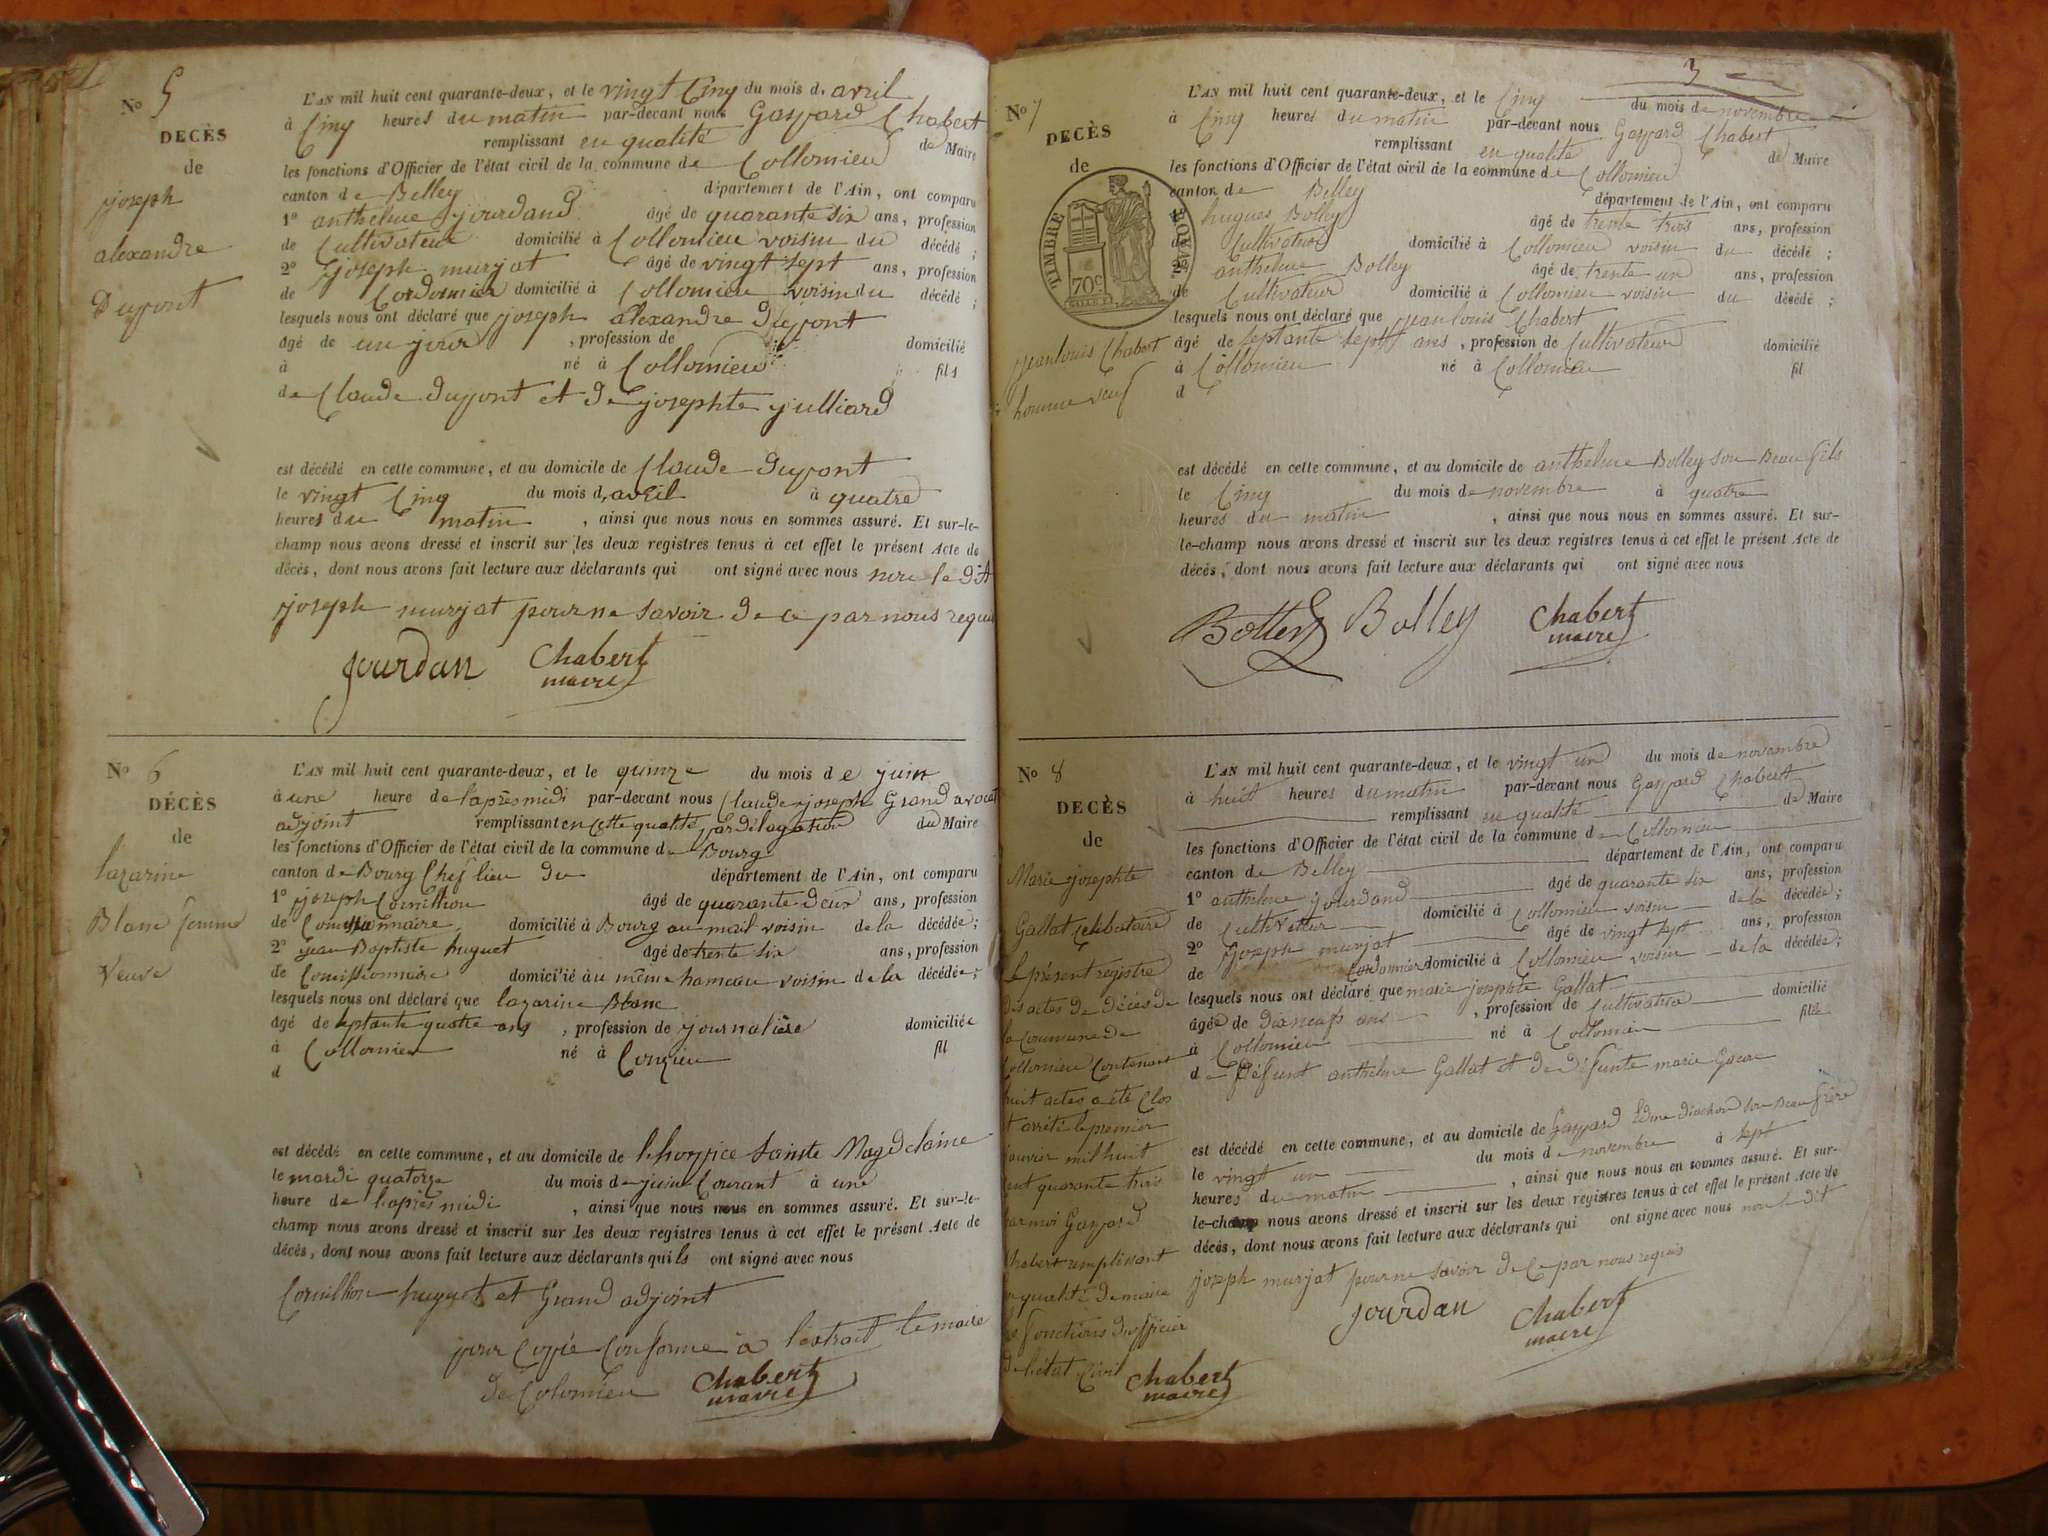 No 5
DECÈS
de
joseph
alexandre
Dupont
L'AN mil huit cent quarante-deux, et le vingt Cinq du mois d, avril
à Cinq heures du matin par-devant nous Gaspard Chabert
remplissant en qualité de Maire
les fonctions d'Officier de l'état civil de la commune de Collomieu
canton de Belley département de l'Ain, ont comparu
1º anthelme jourdand âgé de quarante six ans, profession
de Cultivateur domicilié à Collomieu voisin du décédé ;
2º joseph murjat âgé de vingt sept ans, profession
de Cordonnier domicilié à Collomieu voisin du décédé ;
lesquels nous ont déclaré que joseph alexandre Dupont
âgé de un jour , profession de domicilié
à né à Collomieu fils
de Claude Dupont et de josephte julliard
est décédé en cette commune, et au domicile de Claude Dupont
le vingt Cinq du mois d, avril à quatre
heures du matin , ainsi que nous nous en sommes assuré. Et sur-le-
champ nous avons dressé et inscrit sur les deux registres tenus à cet effet le présent Acte de
décès, dont nous avons fait lecture aux déclarants qui ont signé avec nous le dit
joseph murjat pour ne savoir de ce par nous requis
jourdan Chabert
maire
No 6
DÉCÈS
de
lazarine
Blanc femme
Veuve
L'AN mil huit cent quarante-deux, et le quinze du mois de juin
à une heure de l'après midi par-devant nous Claude joseph Grand avocat
adjoint remplissant en cette qualité par délagation du Maire
les fonctions d'Officier de l'état civil de la commune de Bourg
canton de Bourg Chef lieu du département de l'Ain, ont comparu
1º joseph Cornillon âgé de quarante deux ans, profession
de domicilié à Bourg au mail voisin de la décédée ;
2º jean Baptiste huguet âgé de trente six ans, profession
de Comissionnaire domicilié au même hameau voisin de la décédée ;
lesquels nous ont déclaré que lazarine Blanc
âgé de septante quatre ans , profession de journalière domiciliée
à Collomieu né à Conzieu fil
d
est décédé en cette commune, et au domicile de l'hospice Sainte Magdelaine
le mardi quatorze du mois de juin Courant à une
heure de l'après midi , ainsi que nous nous en sommes assuré. Et sur-le-
champ nous avons dressé et inscrit sur les deux registres tenus à cet effet le présent Acte de
décès, dont nous avons fait lecture aux déclarants qui ls ont signé avec nous
Cornillon huguet et Grand adjoint
pour Copie Conforme à l'extrait le maire
de Colomieu Chabert
maire
3
No 7
DECÈS
de
TIMBRE ROYAL
70c
jean louis Chabert
homme veuf
L'AN mil huit cent quarante-deux, et le Cinq du mois de novembre
à Cinq heures du matin par-devant nous Gaspard Chabert
remplissant en qualité de Maire
les fonctions d'Officier de l'état civil de la commune de Collomieu
canton de Belley département de l'Ain, ont comparu
hugues Bolley âgé de trente trois ans, profession
de Cultivateur domicilié à Collomieu voisin du décédé ;
2º anthelme Bolley âgé de trente un ans, profession
de Cultivateur domicilié à Collomieu voisin du décédé ;
lesquels nous ont déclaré que jean louis Chabert
âgé de septante sept ans , profession de Cultivateur domicilié
à Collomieu né à Collomieu fil
d
est décédé en cette commune, et au domicile de anthelme Bolley son Beau fils
le Cinq du mois de novembre à quatre
heures du matin , ainsi que nous nous en sommes assuré. Et sur-
le-champ nous avons dressé et inscrit sur les deux registres tenus à cet effet le présent Acte de
décès, dont nous avons fait lecture aux déclarants qui ont signé avec nous
Bolley Bolley Chabert
maire
No 8
DECÈS
de
Marie josephte
Gallat Celibataire
Le présent registre
des actes de décès de
la Commune de
Collomieu Contenant
huit actes a été Clos
et arrêté le premier
janvier mil huit
cent quarante trois
par moi Gaspard
Chabert remplissant
en qualité de maire
les fonctions d'officier
de l'état Civil Chabert
maire
L'AN mil huit cent quarante-deux, et le vingt un du mois de novembre
à huit heures du matin par-devant nous Gaspard Chabert
remplissant en qualité de Maire
les fonctions d'Officier de l'état civil de la commune de Collomieu
canton de Belley département de l'Ain, ont comparu
1º anthelme jourdand âgé de quarante six ans, profession
de Cultivateur domicilié à Collomieu voisin de la décédée ;
2º joseph murjat âgé de vingt sept ans, profession
de Cordonnier domicilié à Collomieu voisin de la décédée ;
lesquels nous ont déclaré que marie josephte Gallat
âgée de dix neuf ans , profession de Cultivatrice domicilié
à Collomieu né à Collomieu fille
de Défunt anthelme Gallat et de Défunte marie
est décédé en cette commune, et au domicile de Gaspard son Beau frère
le vingt un du mois de novembre à sept
heures du matin , ainsi que nous nous en sommes assuré. Et sur-
le-champ nous avons dressé et inscrit sur les deux registres tenus à cet effet le présent Acte de
décès, dont nous avons fait lecture aux déclarants qui ont signé avec nous non le dit
joseph murjat pour ne savoir de ce par nous requis
jourdan Chabert
maire